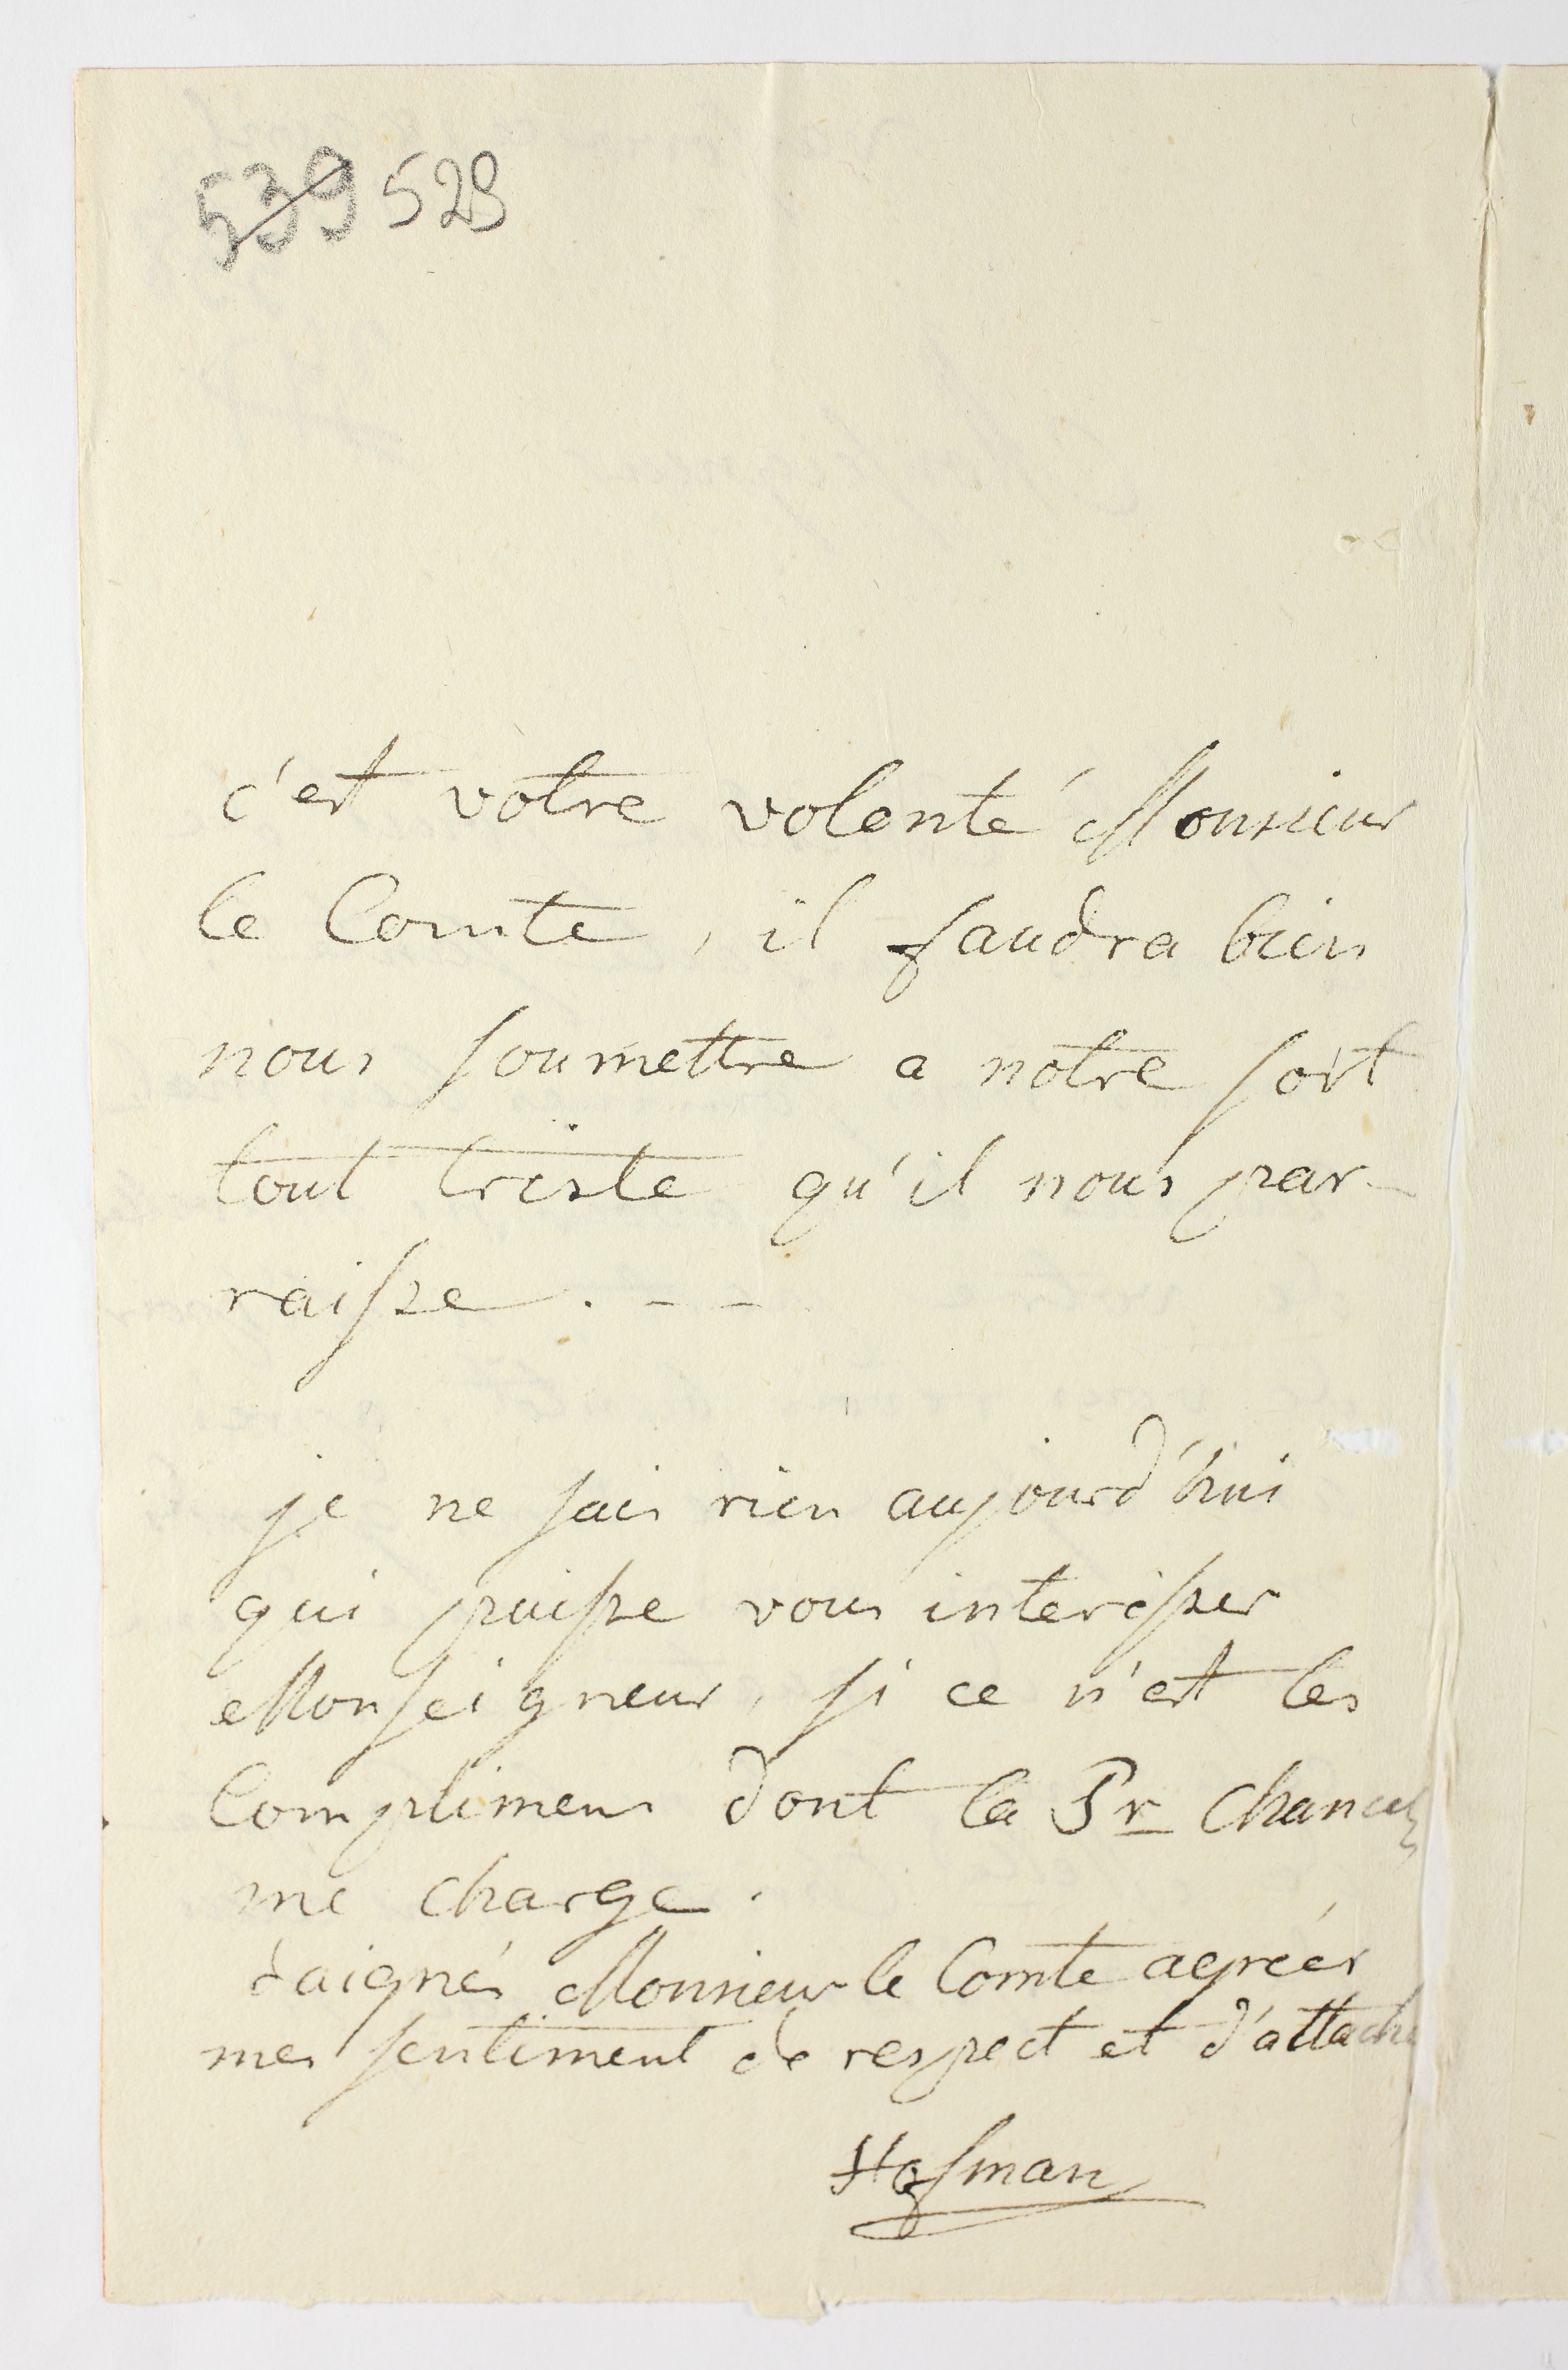 539 528
c'est votre volenté Monsieur
le Comte, il faudra bien
nous soumettre a notre sort
tout triste qu'il nous par-
raisse. - -
je ne sais rien aujourd'hui
qui puisse vous interésser
Monseigneur, si ce n'est les
Complimens dont la Pr
me charge.
daignés Monsieur le Comte agréér
mes sentiment de respect et d'attache
Hofman